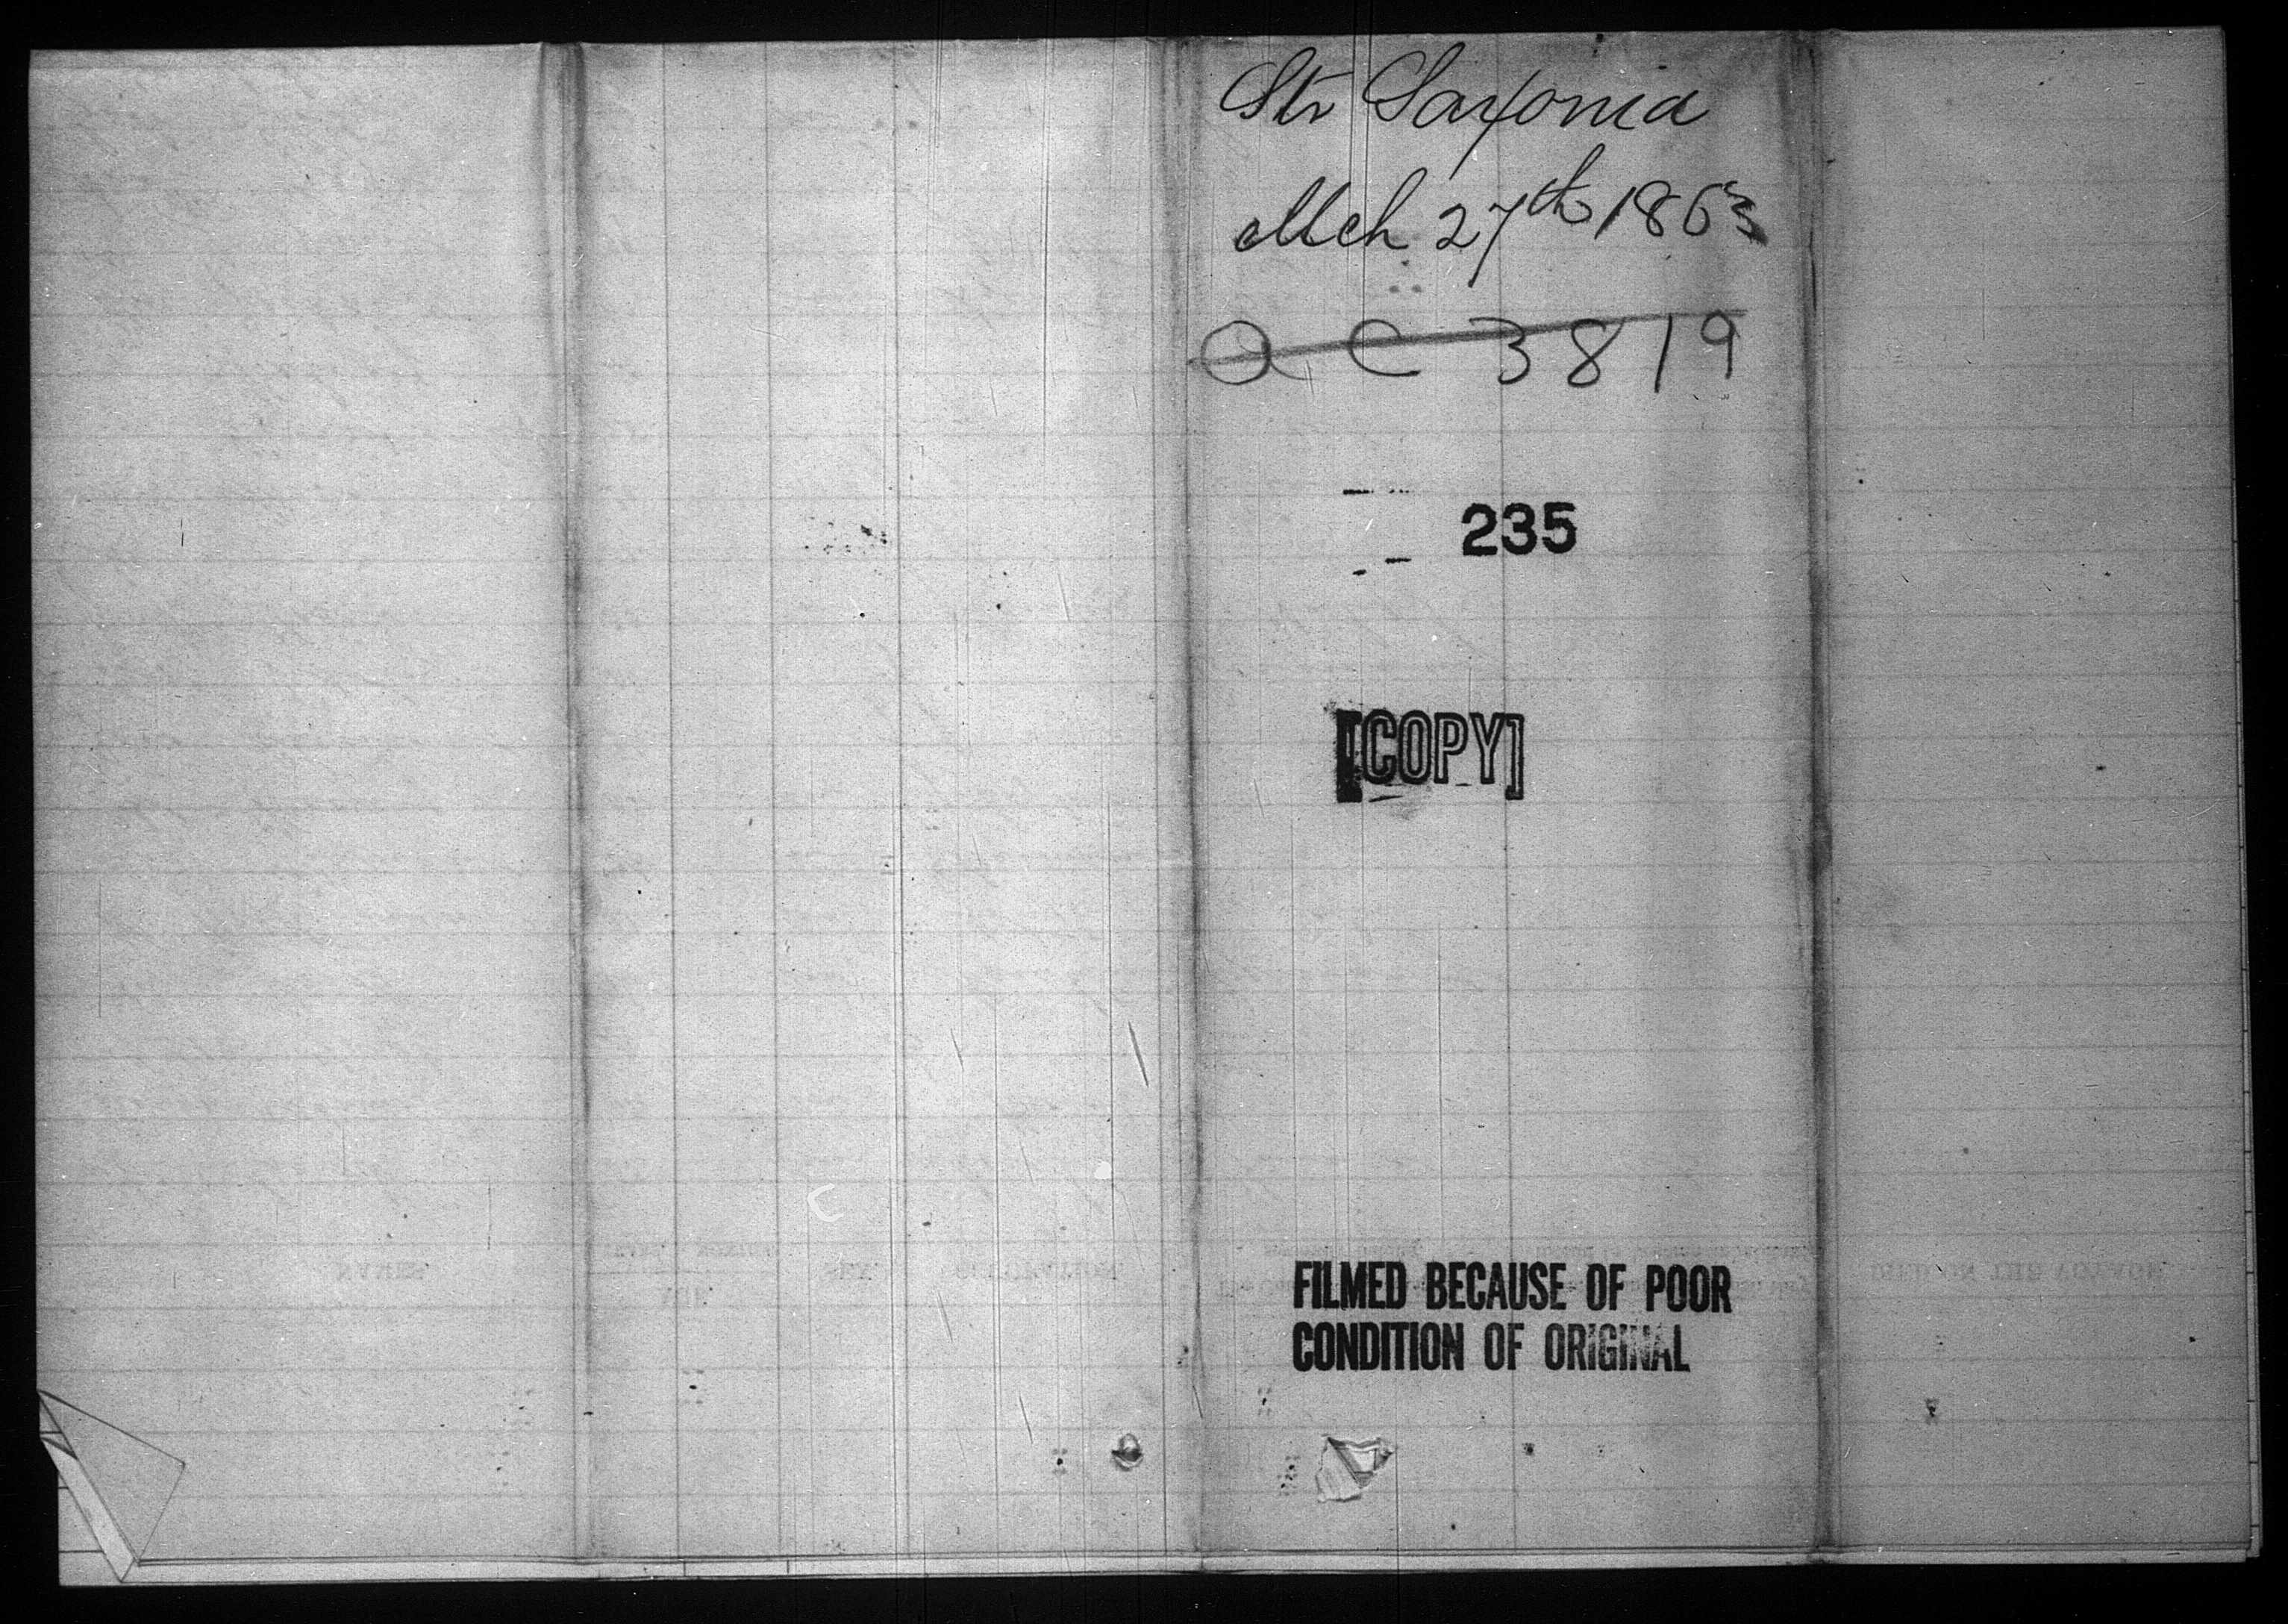 Str Saxonia
Mch 27th 1863
O C 3819
235
[COPY]
FILMED BECAUSE OF POOR
CONDITION OF ORIGINAL